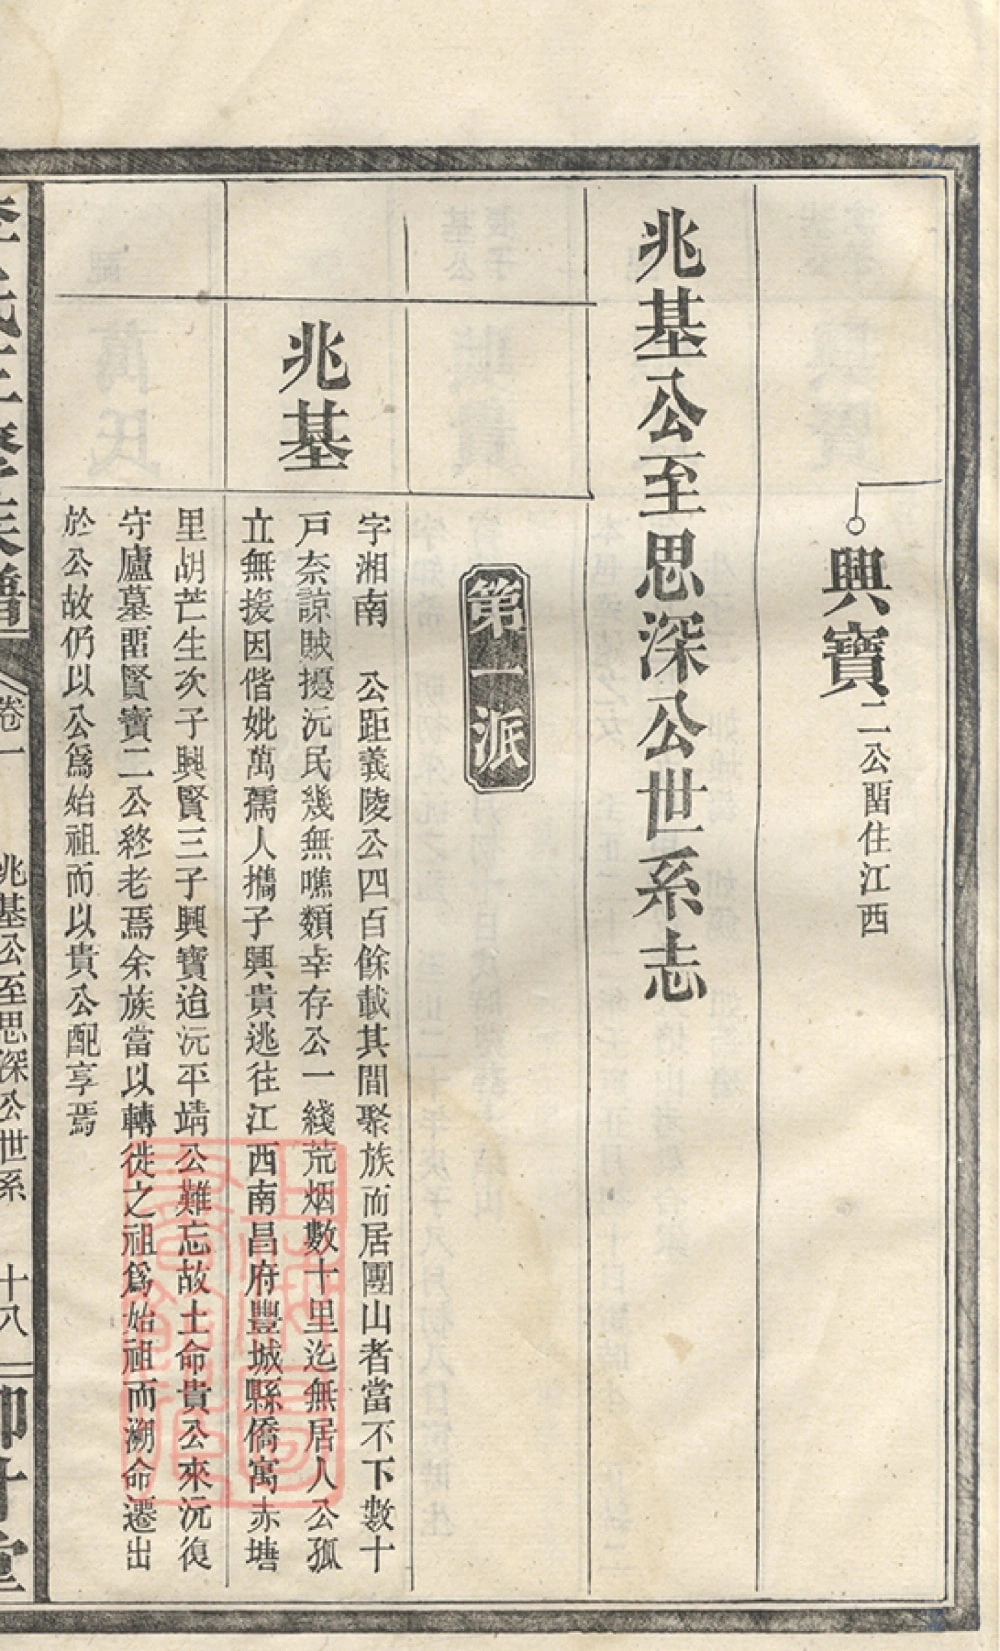 興寶二公畱住江西
兆基公至思深公世系志
第一派
兆基
字湘南　公距義陵公四百餘載其間聚族而居團山者當不下數十
戶奈諒賊擾沅民幾無噍類幸存公一綫荒烟數十里迄無居人公孤
立無援因偕妣萬孺人攜子興貴逃往江西南昌府豐城縣僑寓赤塘
里胡芒生次子興賢三子興寶迨沅平靖公難忘故土命貴公來沅復
守廬墓畱賢寶二公終老焉余族當以轉徙之祖爲始祖而溯命遷出
於公故仍以公爲始祖而以貴公配享焉
氏三修族譜
卷一
兆基公至思深公世系
十八